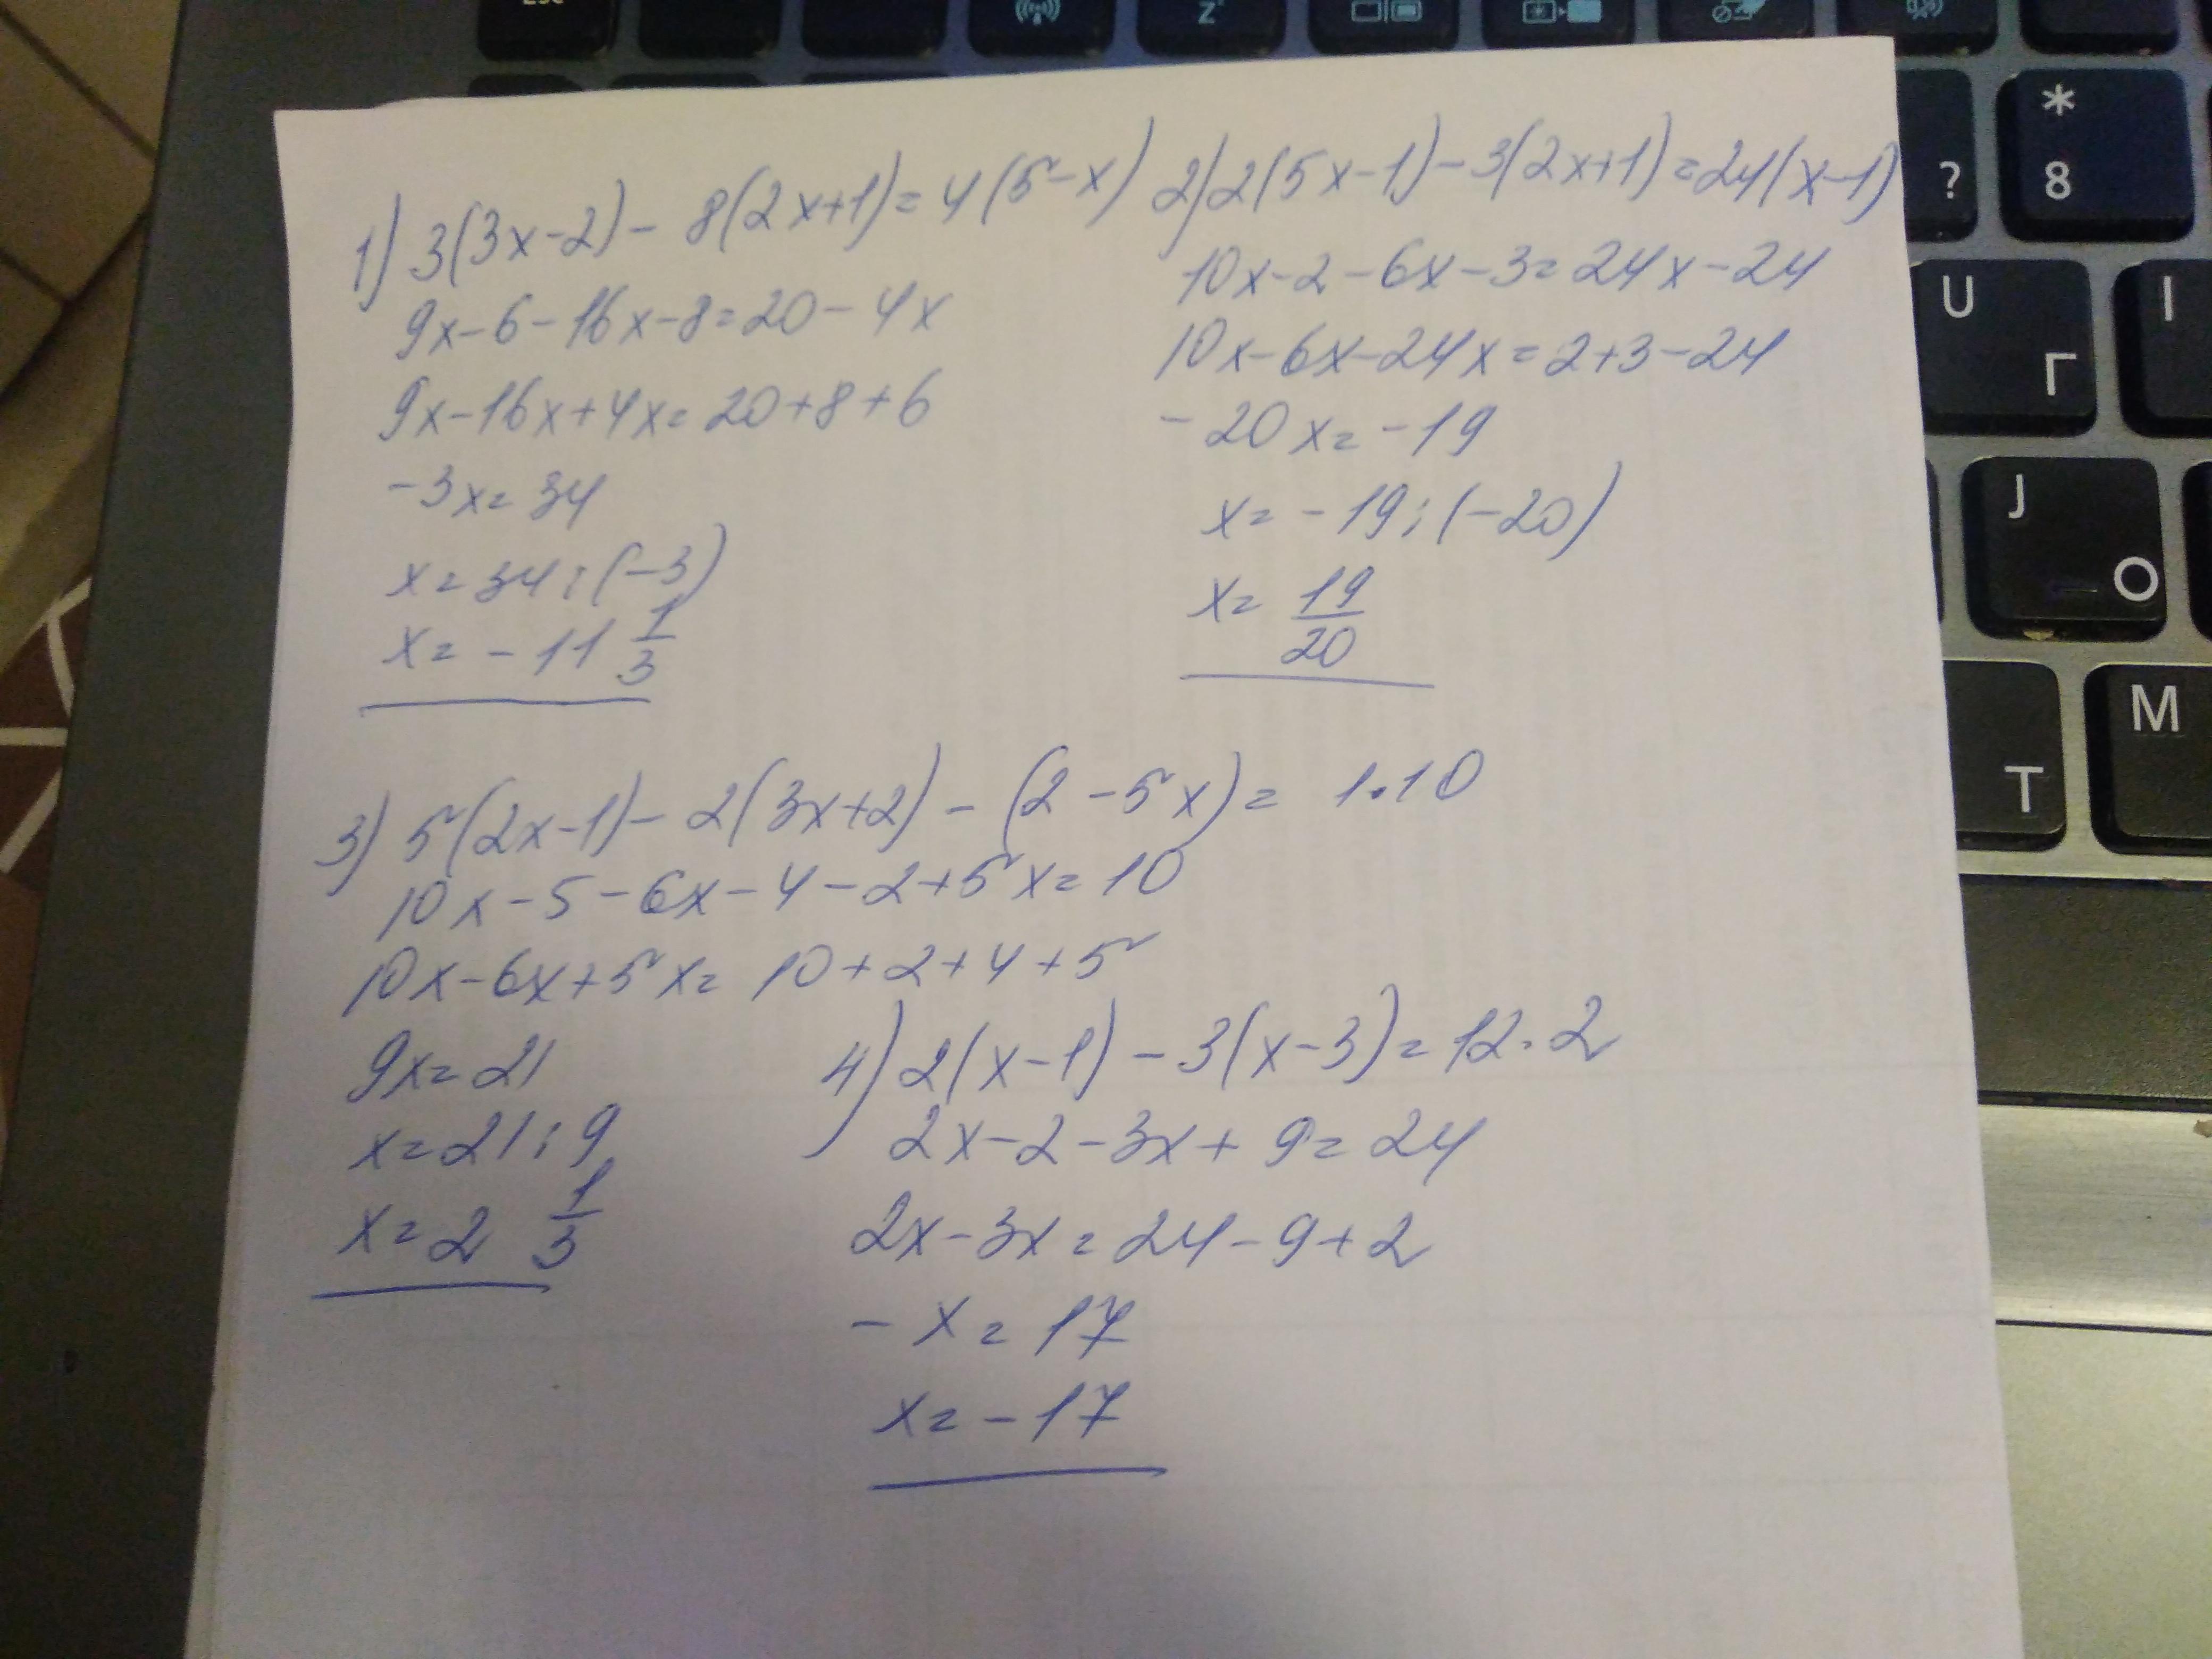 Esc
Z
* 8
?
U Г
I
J О
M
Т
1) 3(3x-2) - 8(2x+1) = 4(5-x)
9x-6-16x-8=20-4x
9x-16x+4x=20+8+6
-3x=34
x=34:(-3)
x=-11 1/3
2) 2(5x-1)-3(2x+1)=24(x-1)
10x-2-6x-3=24x-24
10x-6x-24x=2+3-24
-20x=-19
x=-19:(-20)
x=19/20
3) 5(2x-1)-2(3x+2)-(2-5x)=1·10
10x-5-6x-4-2+5x=10
10x-6x+5x=10+2+4+5
9x=21
x=21:9
x=2 1/3
4) 2(x-1)-3(x-3)=12·2
2x-2-3x+9=24
2x-3x=24-9+2
-x=17
x=-17